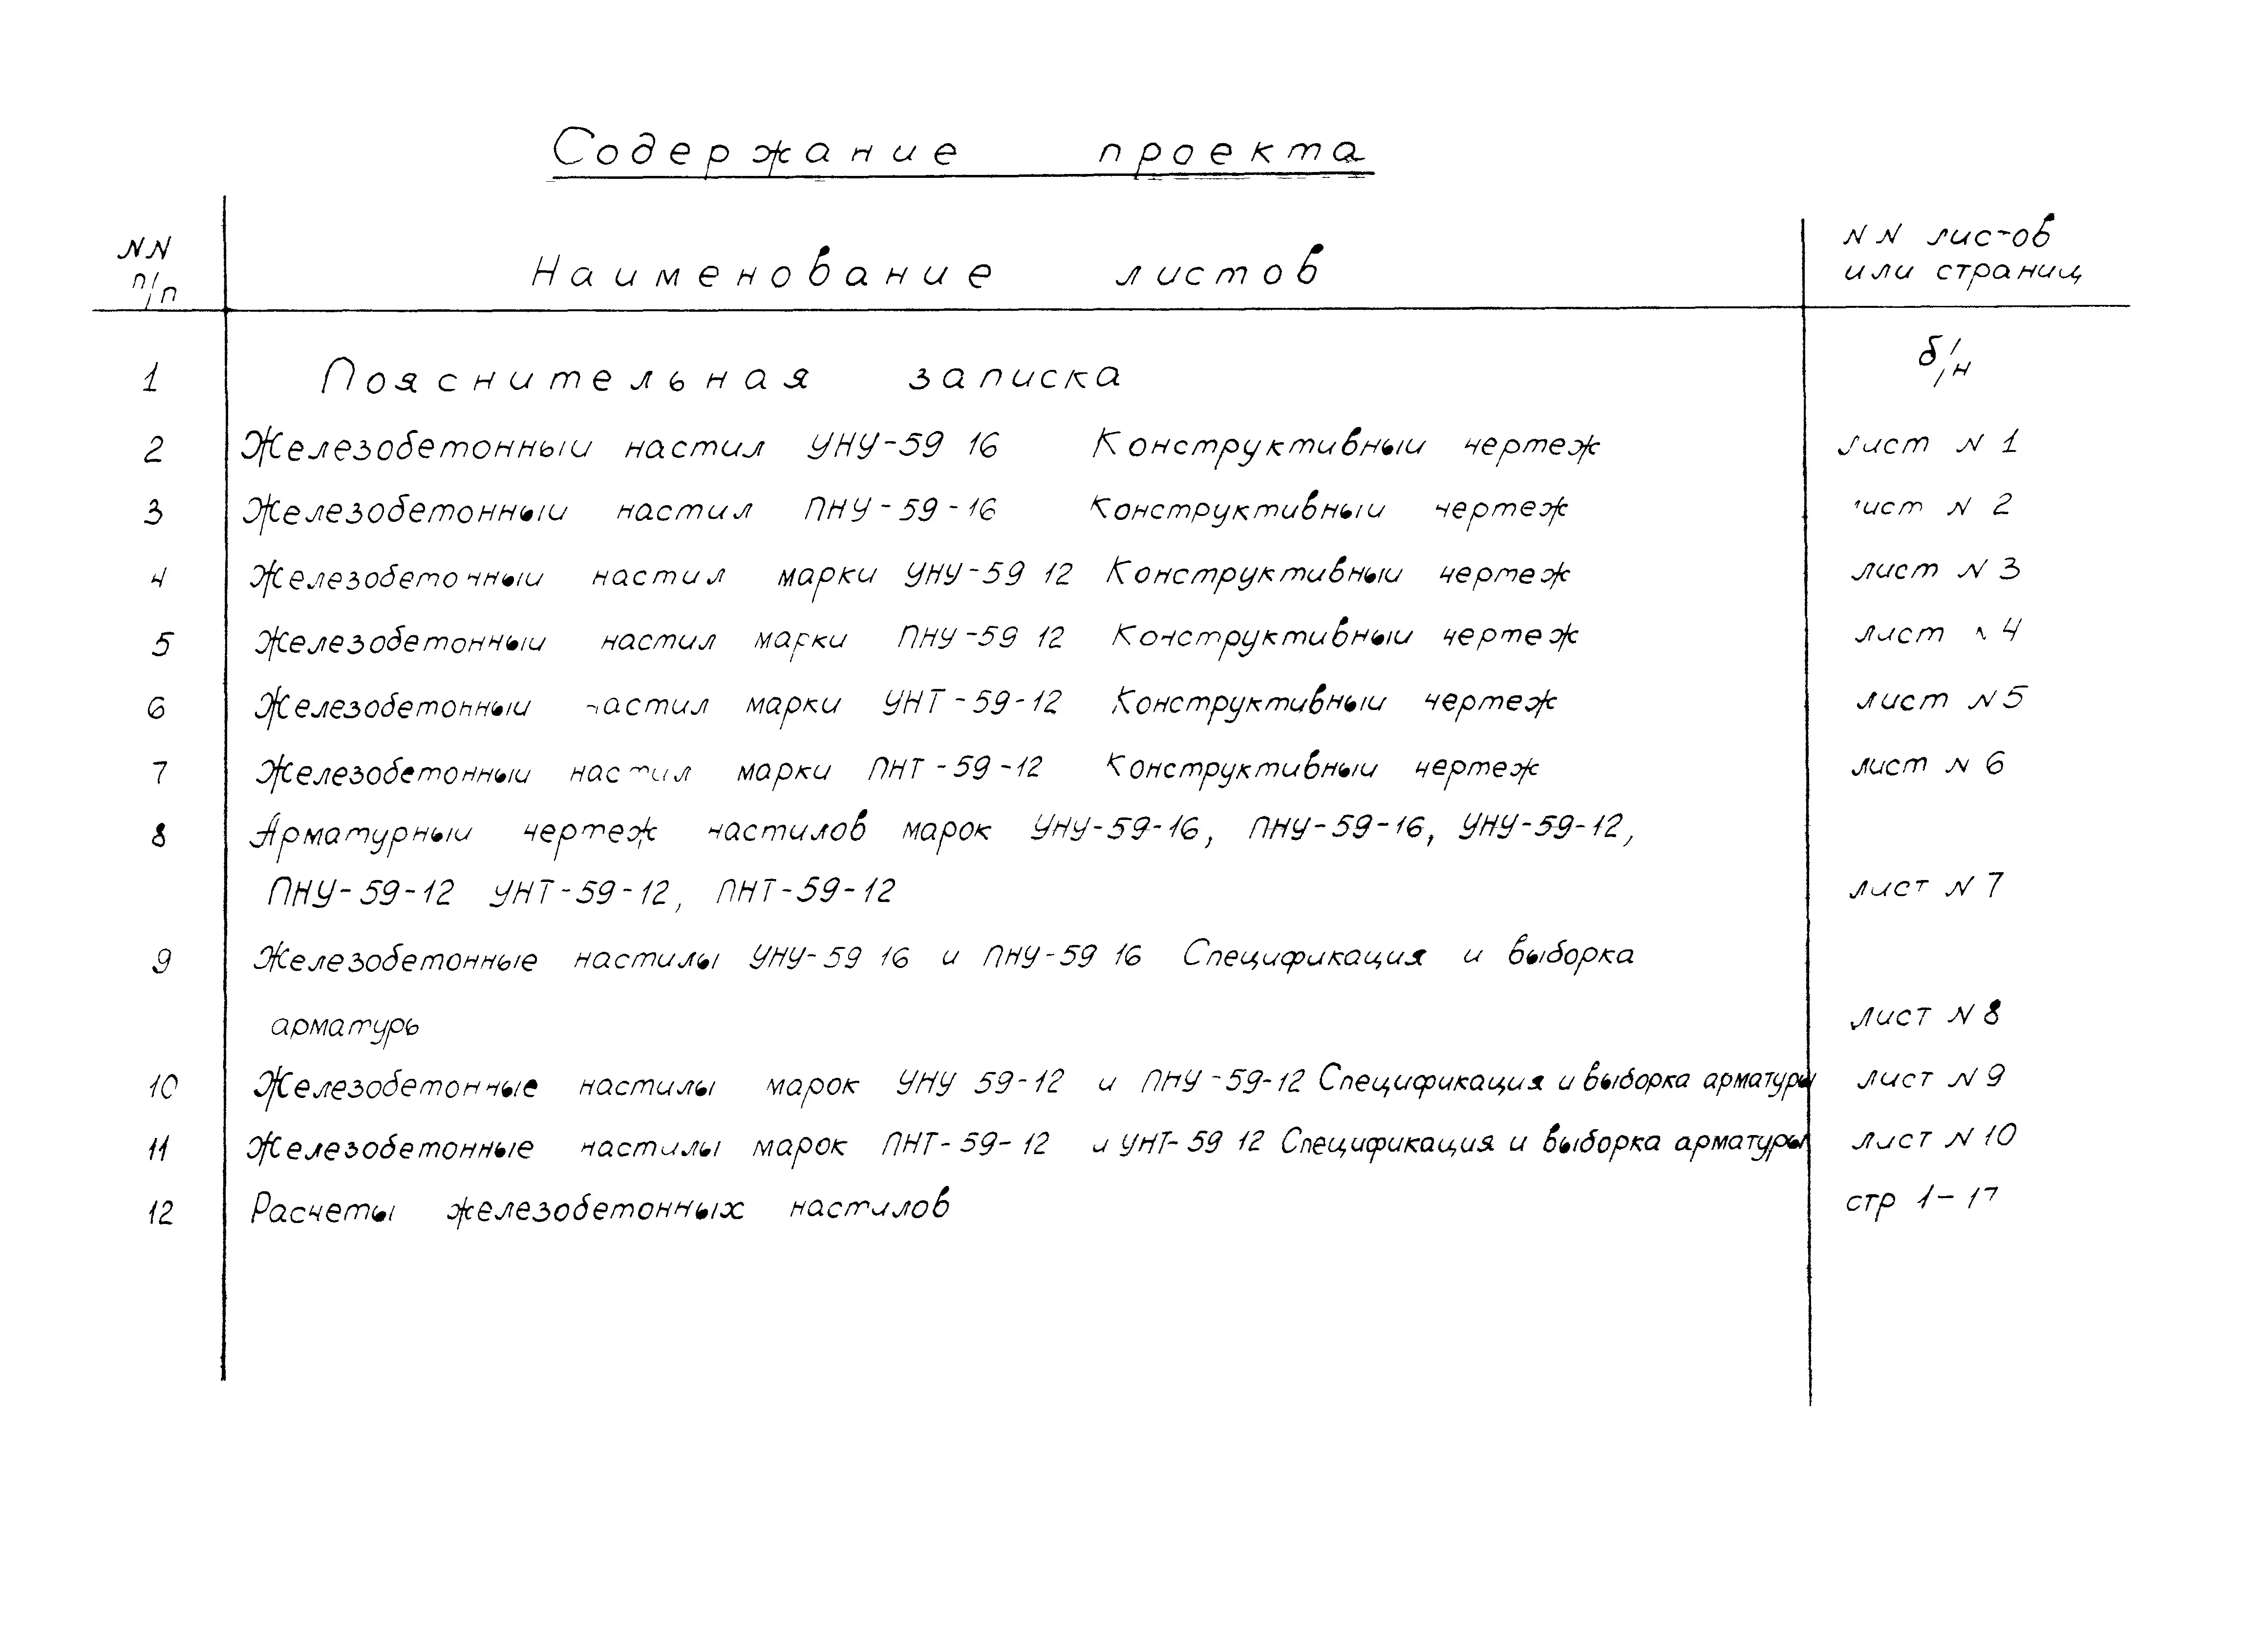 Содержание проекта
NN п/п Наименование листов NN листов или страниц
1 Пояснительная записка б/н
2 Железобетонный настил УНУ-59 16 Конструктивный чертеж лист N 1
3 Железобетонный настил ПНУ-59-16 Конструктивный чертеж лист N 2
4 Железобетонный настил марки УНУ-59 12 Конструктивный чертеж лист N 3
5 Железобетонный настил марки ПНУ-59 12 Конструктивный чертеж лист N 4
6 Железобетонный настил марки УНТ-59-12 Конструктивный чертеж лист N 5
7 Железобетонный настил марки ПНТ-59-12 Конструктивный чертеж лист N 6
8 Арматурный чертеж настилов марок УНУ-59-16, ПНУ-59-16, УНУ-59-12,
ПНУ-59-12 УНТ-59-12, ПНТ-59-12 лист N 7
9 Железобетонные настилы УНУ-59 16 и ПНУ-59 16 Спецификация и выборка
арматуры лист N 8
10 Железобетонные настилы марок УНУ 59-12 и ПНУ-59-12 Спецификация и выборка арматуры лист N 9
11 Железобетонные настилы марок ПНТ-59-12 и УНТ-59 12 Спецификация и выборка арматуры лист N 10
12 Расчеты железобетонных настилов стр 1-17